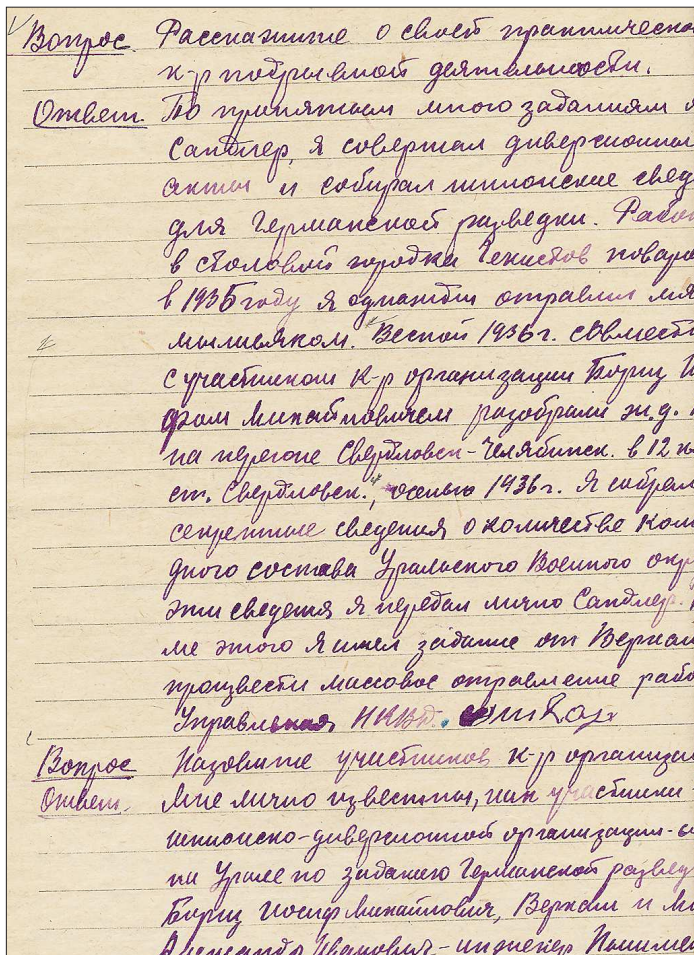 Вопрос. Расскажите о своей практическо
к-р подрывной деятельности.
Ответ. По принятым мною заданиям
Сандлер, я совершал диверсионны
акты и собирал шпионские свед
для Германской разведки. Работ
в столовой городка Чекистов поваро
в 1935 году я однажды отравил мя
мышьяком. Весной 1936 г. совмест
с участником к-р организации Борщ И
фом Михайловичем разобрали ж.д.
на перегоне Свердловск-Челябинск. в 12 к
ст. Свердловск., осенью 1936 г. Я собрал
секретные сведения о количестве ком
дного состава Уральского Военного окр
эти сведения я передал лично Сандлер.
ме этого я имел задание от Веркан
произвести массовое отравление рабо
Управления НКВД.
Вопрос Назовите участников к-р организац
Ответ. Мне лично известны, как участники
шпионско-диверсионной организации
на Урале по заданию Германской развед
Борщ Иосиф Михайлович, Веркан и М
Александр Иванович - инженер